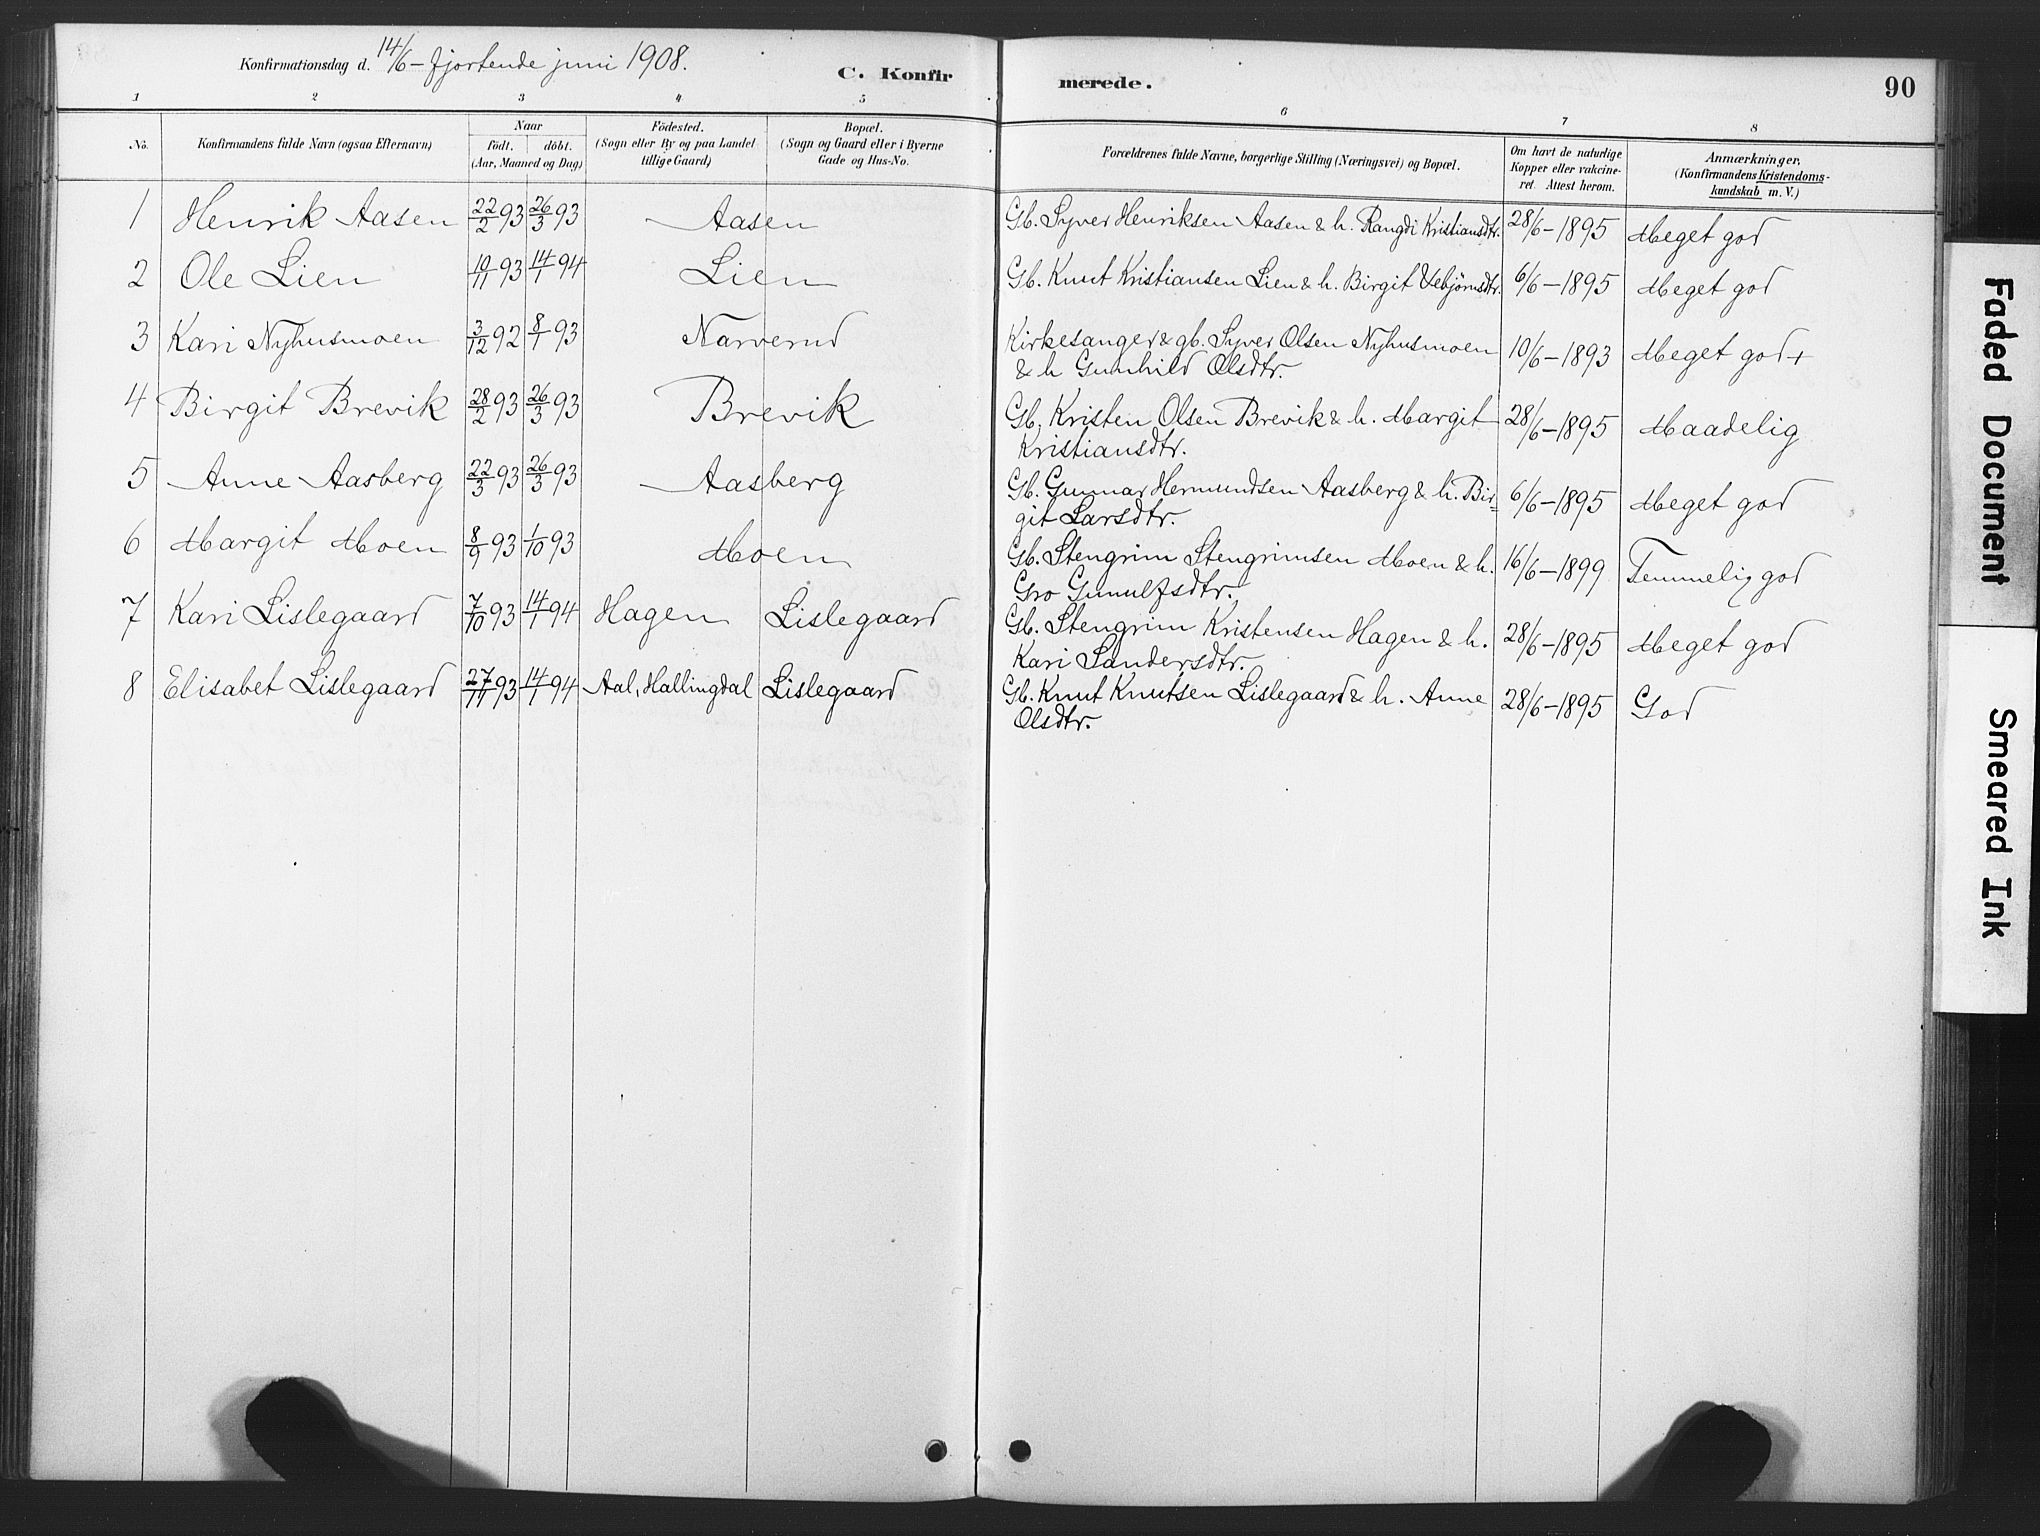 Konfirmationsdag d. 14/6 - fjortende juni 1908.
C. Konfirmerede.
90
1 2 3 4 5 6 7 8
No.
Konfirmandens fulde Navn (ogsaa Efternavn)
Naar
födt. döbt.
(Aar, Maaned og Dag)
Födested.
(Sogn eller By og paa Landet
tillige Gaard)
Bopæl.
(Sogn og Gaard eller i Byerne
Gade og Hus-No.
Forældrenes fulde Navne, borgerlige Stilling (Næringsvei) og Bopæl.
Om havt de naturlige
Kopper eller vakcine-
ret. Attest herom.
Anmærkninger.
(Konfirmandens Kristendoms-
kundskab m. V.)
1 Henrik Aasen 22/2 93 26/3 93 Aasen Gb. Syver Henriksen Aasen & h. Rangdi Kristiansdtr. 28/6-1895 Meget god
2 Ole Lien 10/11 93 14/1 94 Lien Gb. Knut Kristiansen Lien & h. Birgit Vebjörnsdtr. 6/6-1895 Meget god
3 Kari Nyhusmoen 3/12 92 8/1 93 Narverud Kirkesanger & gb. Syver Olsen Nyhusmoen 10/6-1893 Meget god+
& h Gunhild Olsdtr.
4 Birgit Brevik 28/2 93 26/3 93 Brevik Gb. Kristen Olsen Brevik & h. Margit 28/6-1895 Maadelig
Kristiansdtr.
5 Anne Aasberg 22/3 93 26/3 93 Aasberg Gb. Gunnar Hermundsen Aasberg & h. Bir= 6/6-1895 Meget god
git Larsdtr.
6 Margit Moen 8/9 93 1/10 93 Moen Gb. Stengrim Stengrimsen Moen & h. 16/6-1899 Temmelig god
Gro Gunulfsdtr.
7 Kari Lislegaard 7/10 93 14/1 94 Hagen Lislegaard Gb. Stengrim Kristensen Hagen & h. 28/6-1895 Meget god
Kari Sandersdtr.
8 Elisabet Lislegaard 27/11 93 14/1 94 Aal, Hallingdal Lislegaard Gb. Knut Knutsen Lislegaard & h. Anne 28/6-1895 God
Olsdtr.
Faded Document
Smeared Ink